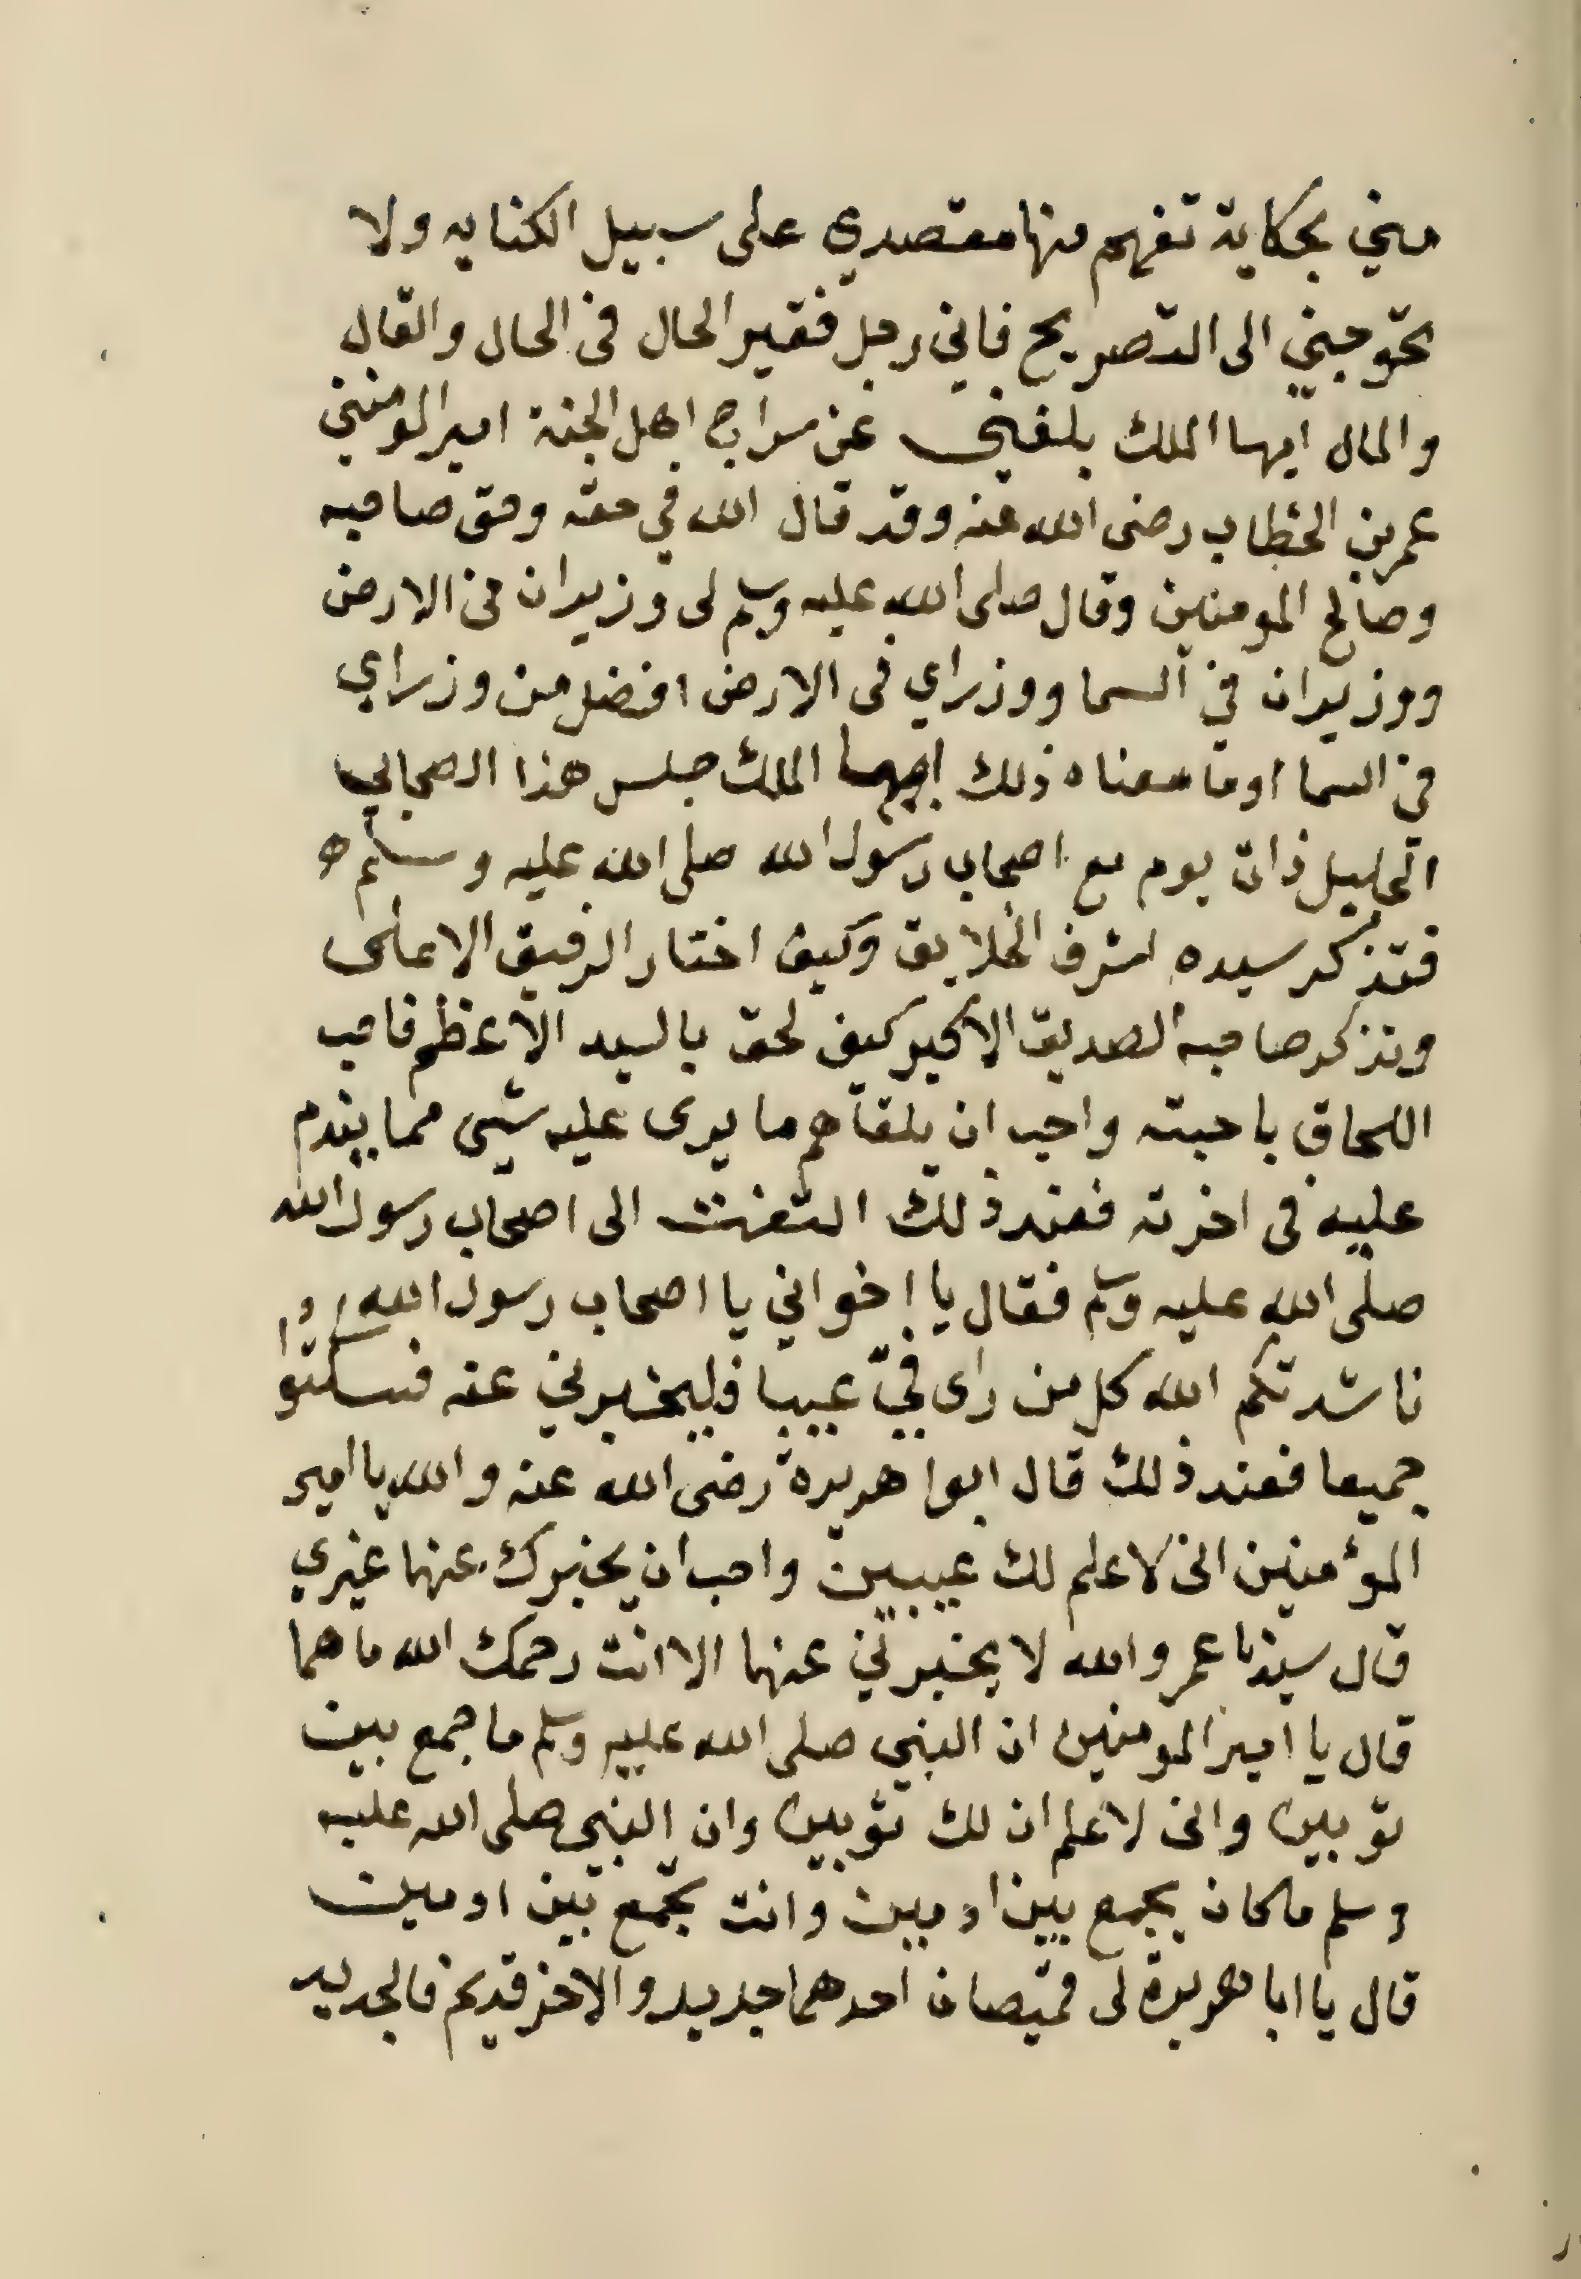 مني بحكاية تفهم منها مقتصدي على سبيل الكنايه ولا
تحوجيني الى التصريح فاني رجل فقير الحال في الحال والقال
والمال ايها الملك بلغني عن سراج اهل الجنة امير المومنين
عمر بن الخطاب رضى الله عنه وقد قال الله في حقه وحق صاحبه
وصالح المومنين وقال صلى الله عليه وسلم لى وزيران في الارض
ووزيران في السما ووزراي في الارض افضل من وزراي
في السما او ما معناه ذلك ايها الملك جلس هذا الصحابي
الجليل ذات يوم مع اصحاب رسول الله صلى الله عليه وسلم ه
فتذكر سيده اشرف الخلايق وكيف اختار الرفيق الاعلى
وتذكر صاحبه الصديق الاكبر كيف لحق بالسيد الاعظم فاحب
اللحاق باحبته واحب ان يلقاهم ما يرى عليه شيى مما يندم
عليه في اخرته فعند ذلك التفت الى اصحاب رسول الله
صلى الله عليه وسلم فقال يا اخواني يا اصحاب رسول الله
ناشدتكم الله كل من راى فيّ عيبا فليخبرني عنه فسكتوا
جميعا فعند ذلك قال ابوا هريرة رضى الله عنه والله يا امير
المؤمنين انى لاعلم لك عيبين واحب ان يخبرك عنها غيري
قال سيدنا عمر والله لا يخبرني عنها الا انت رحمك الله ما هما
قال يا امير المومنين ان النبي صلى الله عليه وسلم ما جمع بين
ثوبين وانى لاعلم ان لك ثوبين وان النبي صلى الله عليه
وسلم ما كان يجمع بين ادمين وانت تجمع بين ادمين
قال يا ابا هريرة لى قميصان احدهما جديد والاخر قديم فالجديد